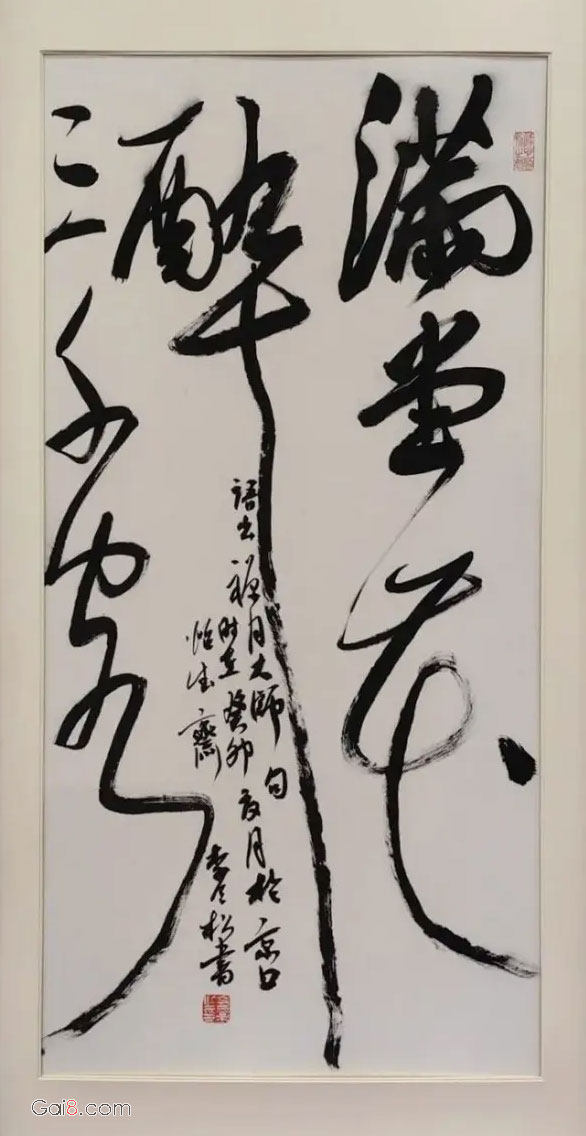 滿堂花
醉
三千客
語出禅月大師句
时在癸卯夏月於京口
怡齋
李松書
Gai8.com